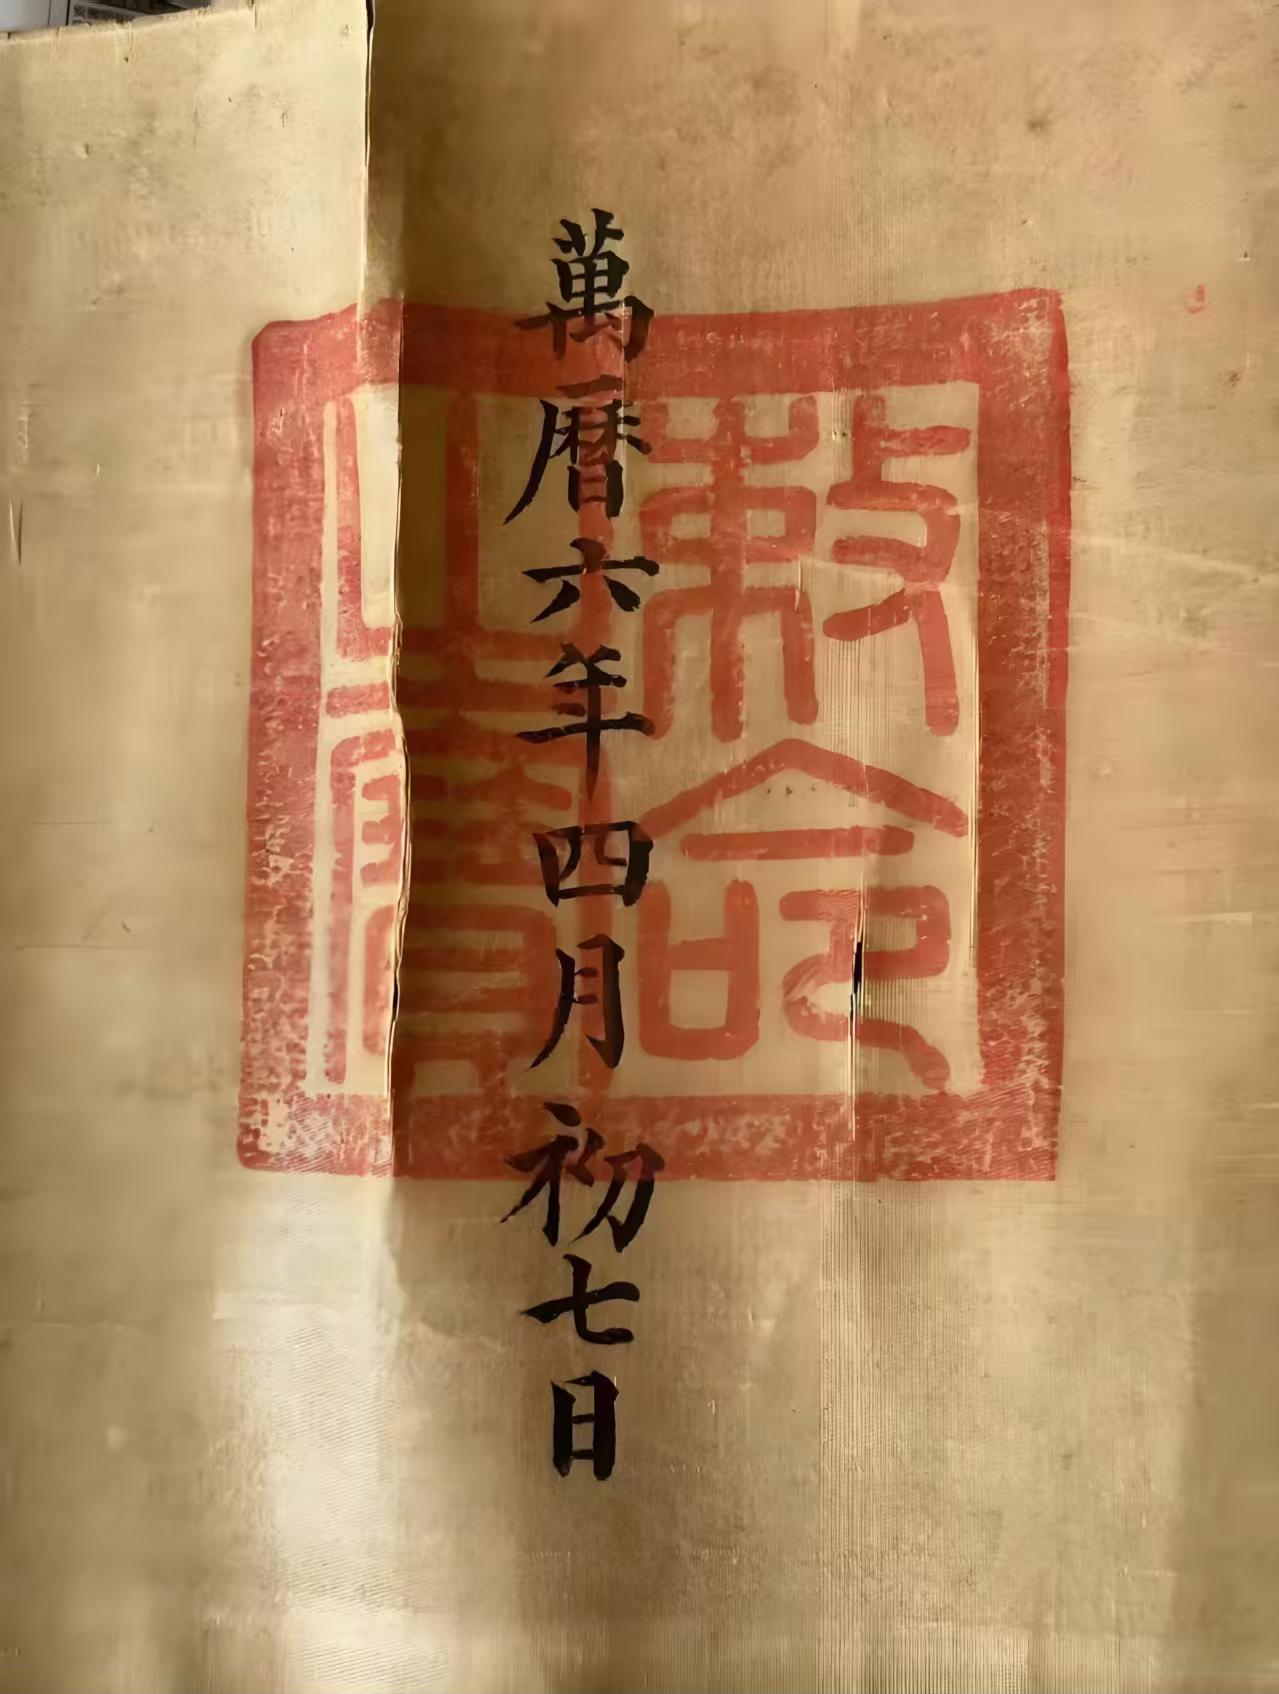 萬曆六年四月初七日
敕命
之寶